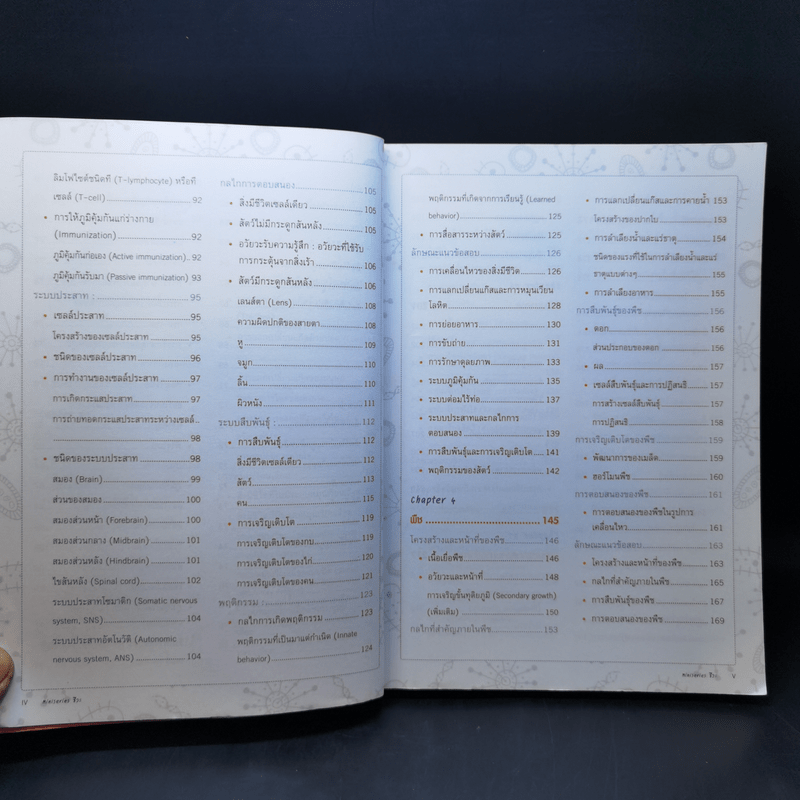 ลิมโฟไซต์ชนิดที (T-lymphocyte) หรือที
เซลล์ (T-cell) 92
• การให้ภูมิคุ้มกันแก่ร่างกาย
(Immunization) 92
ภูมิคุ้มกันก่อเอง (Active immunization). 92
ภูมิคุ้มกันรับมา (Passive immunization) 93
ระบบประสาท : 95
• เซลล์ประสาท 95
โครงสร้างของเซลล์ประสาท 95
• ชนิดของเซลล์ประสาท 96
• การทำงานของเซลล์ประสาท 97
การเกิดกระแสประสาท 97
การถ่ายทอดกระแสประสาทระหว่างเซลล์ ..
98
• ชนิดของระบบประสาท 98
สมอง (Brain) 99
ส่วนของสมอง 100
สมองส่วนหน้า (Forebrain) 100
สมองส่วนกลาง (Midbrain) 101
สมองส่วนหลัง (Hindbrain) 101
ไขสันหลัง (Spinal cord) 102
ระบบประสาทโซมาติก (Somatic nervous
system, SNS) 104
ระบบประสาทอัตโนวัติ (Autonomic
nervous system, ANS) 104
กลไกการตอบสนอง 105
• สิ่งมีชีวิตเซลล์เดียว 105
• สัตว์ไม่มีกระดูกสันหลัง 105
• อวัยวะรับความรู้สึก : อวัยวะที่ใช้รับ
การกระตุ้นจากสิ่งเร้า 106
• สัตว์มีกระดูกสันหลัง 106
เลนส์ตา (Lens) 108
ความผิดปกติของสายตา 108
หู 109
จมูก 110
ลิ้น 110
ผิวหนัง 111
ระบบสืบพันธุ์ : 112
• การสืบพันธุ์ 112
สิ่งมีชีวิตเซลล์เดียว 112
สัตว์ 113
คน 115
• การเจริญเติบโต 119
การเจริญเติบโตของกบ 119
การเจริญเติบโตของไก่ 120
การเจริญเติบโตของคน 121
พฤติกรรม : 123
• กลไกการเกิดพฤติกรรม 123
พฤติกรรมที่เป็นมาแต่กำเนิด (Innate
behavior) 124
IV Miniseries ชีวะ
พฤติกรรมที่เกิดจากการเรียนรู้ (Learned
behavior) 125
• การสื่อสารระหว่างสัตว์ 125
ลักษณะแนวข้อสอบ 126
• การเคลื่อนไหวของสิ่งมีชีวิต 126
• การแลกเปลี่ยนแก๊สและการหมุนเวียน
โลหิต 128
• การย่อยอาหาร 130
• การขับถ่าย 131
• การรักษาดุลยภาพ 133
• ระบบภูมิคุ้มกัน 135
• ระบบต่อมไร้ท่อ 137
• ระบบประสาทและกลไกการ
ตอบสนอง 139
• การสืบพันธุ์และการเจริญเติบโต 141
• พฤติกรรมของสัตว์ 142
Chapter 4
พืช 145
โครงสร้างและหน้าที่ของพืช 146
• เนื้อเยื่อพืช 146
• อวัยวะและหน้าที่ 148
การเจริญขั้นทุติยภูมิ (Secondary growth)
(เพิ่มเติม) 150
กลไกที่สำคัญภายในพืช 153
• การแลกเปลี่ยนแก๊สและการคายน้ำ 153
โครงสร้างของปากใบ 153
• การลำเลียงน้ำและแร่ธาตุ 154
ชนิดของแรงที่ใช้ในการลำเลียงน้ำและแร่
ธาตุแบบต่างๆ 155
• การลำเลียงอาหาร 155
การสืบพันธุ์ของพืช 156
• ดอก 156
ส่วนประกอบของดอก 156
• ผล 157
• เซลล์สืบพันธุ์และการปฏิสนธิ 157
การสร้างเซลล์สืบพันธุ์ 157
การปฏิสนธิ 158
การเจริญเติบโตของพืช 159
• พัฒนาการของเมล็ด 159
• ฮอร์โมนพืช 160
การตอบสนองของพืช 161
• การตอบสนองของพืชในรูปการ
เคลื่อนไหว 161
ลักษณะแนวข้อสอบ 163
• โครงสร้างและหน้าที่ของพืช 163
• กลไกที่สำคัญภายในพืช 165
• การสืบพันธุ์ของพืช 167
• การตอบสนองของพืช 169
Miniseries ชีวะ V